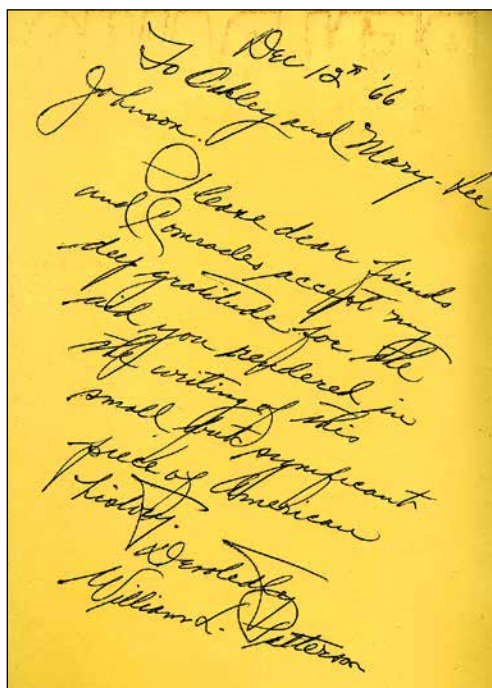 Dec 12th '66
To Oakley and Mary-Lee
Johnson.
Please dear friends
and Comrades accept my
deep gratitude for the
aid you rendered in
the writing of this
small but significant
piece of American
history.
Devotedly
William L. Patterson